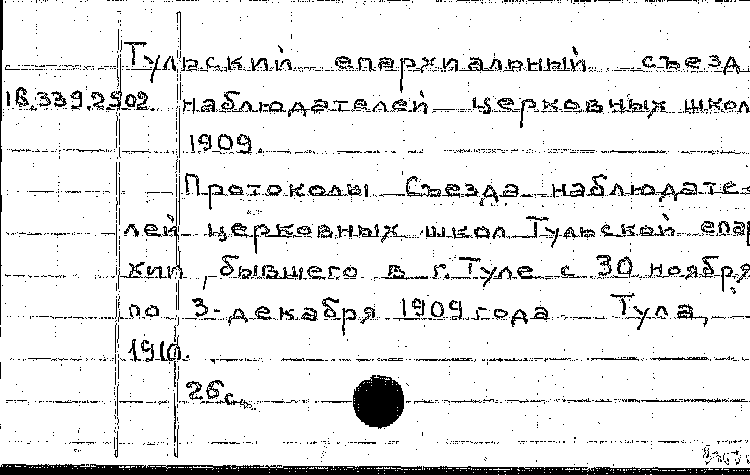 Тульский епархиальный съезд
18.339.2902. наблюдателей церковных школ
1909.
Протоколы Съезда наблюдате-
лей церковных школ Тульской епар
хии, бывшего в г. Туле с 30 ноября
по 3-декабря 1909 года Тула,
1910.
26с.